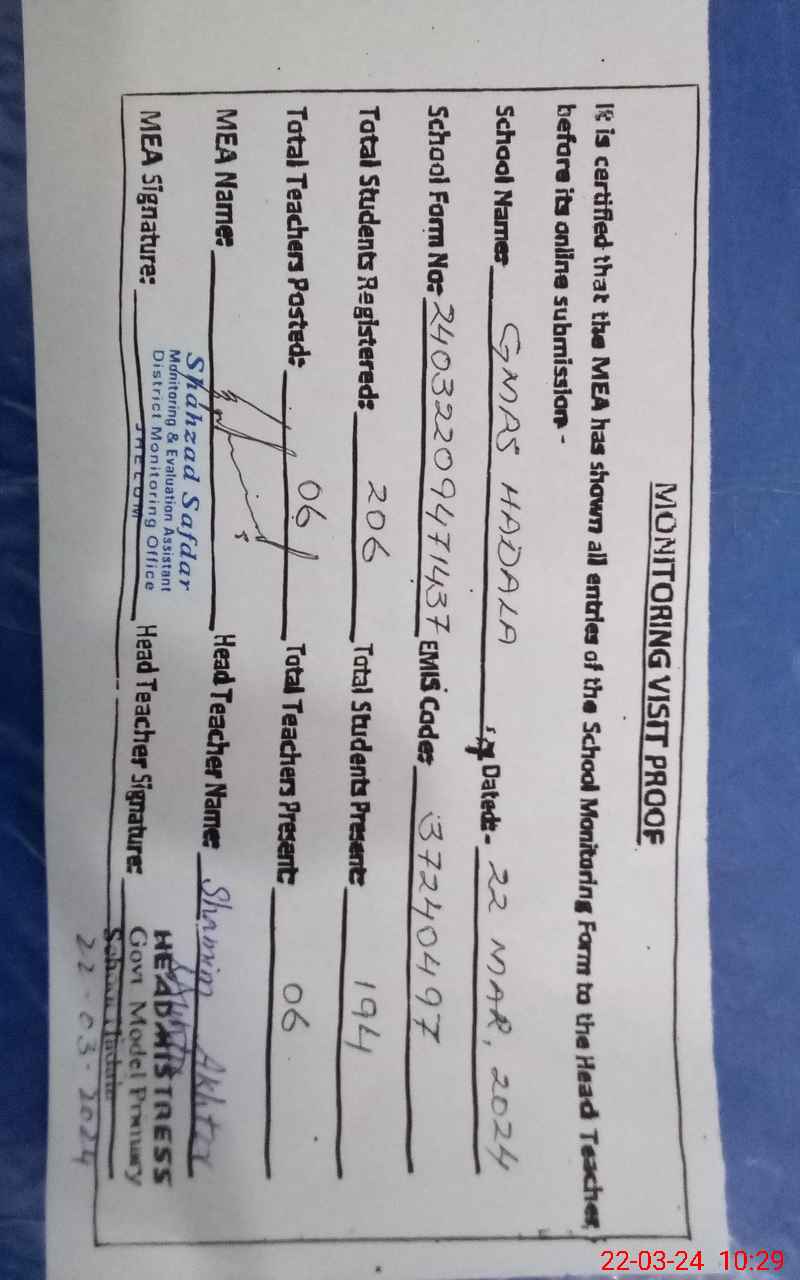 MONITORING VISIT PROOF
It is certified that the MEA has shown all entries of the School Monitoring Form to the Head Teacher,
before its online submission.-
School Name: GMAS HADALA Dated:- 22 MAR, 2024
School Form No: 2403220947143７ EMIS Code: 37240497
Total Students Registered: 206 Total Students Present: 194
Total Teachers Posted: 06 Total Teachers Present: 06
MEA Name: Head Teacher Name: Shamim Akhter
MEA Signature: Head Teacher Signature:
Shahzad Safdar
Monitoring & Evaluation Assistant
District Monitoring Office
JHELUM
HEADMISTRESS
Govt Model Primary
School
22-03-2024
22-03-24 10:29